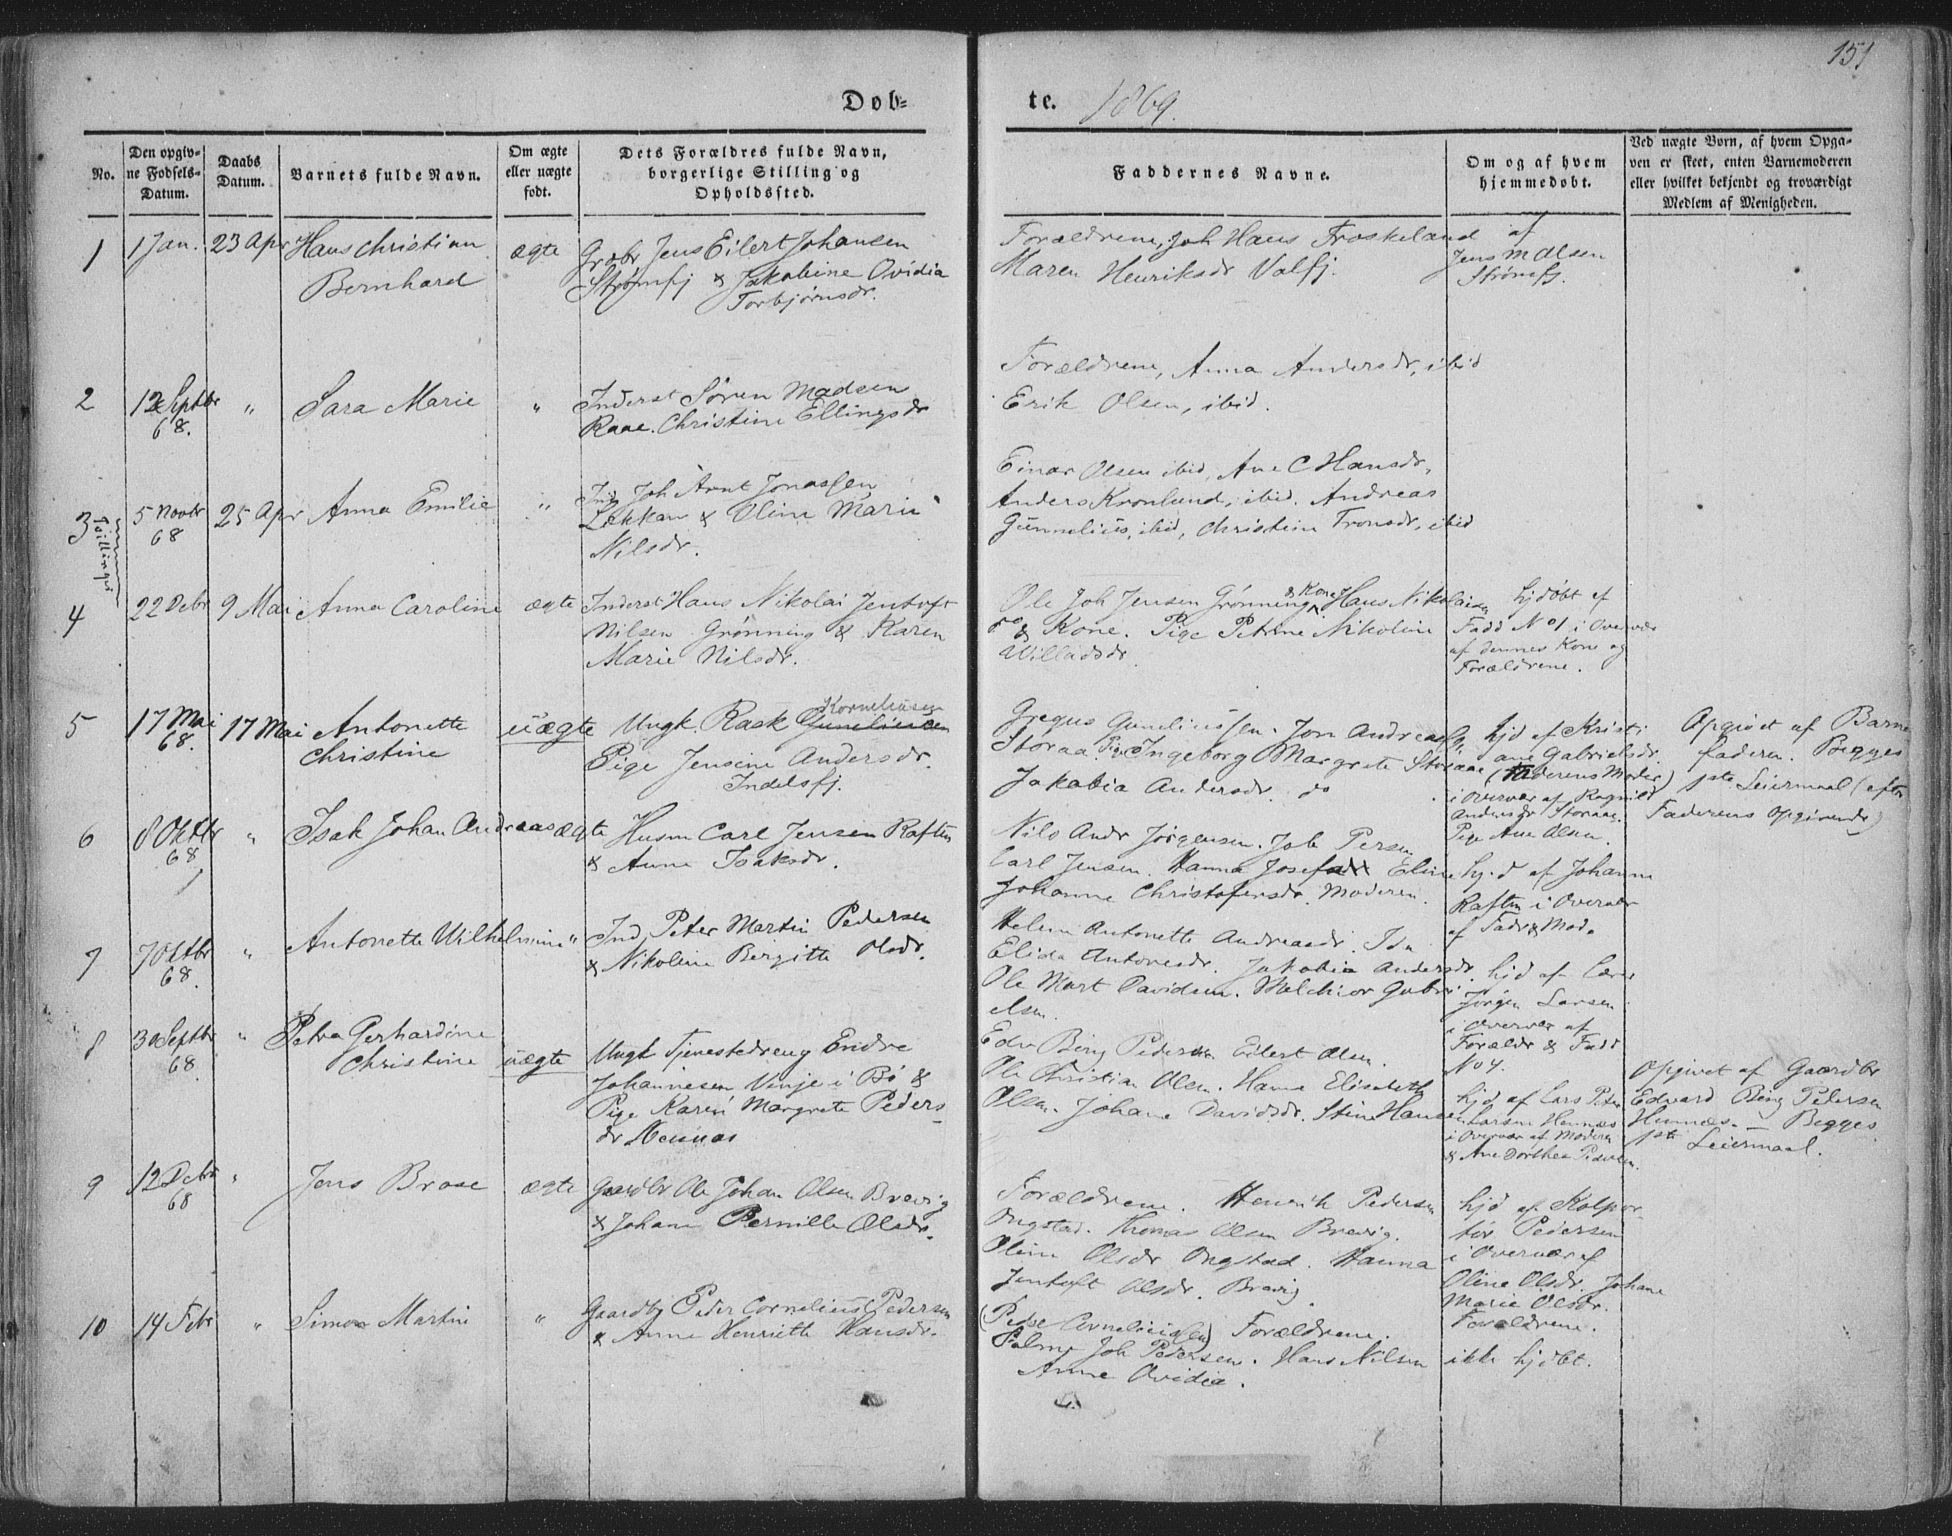 151
Døb=
te. 1869.
No.
Den opgiv=
ne Fødsels=
Datum.
Daabs
Datum.
Barnets fulde Navn.
Om ægte
eller uægte
født.
Dets Forældres fulde Navn,
borgerlige Stilling og
Opholdssted.
Faddernes Navne.
Om og af hvem
hjemmedøbt.
Ved uægte Børn, af hvem Opga-
ven er skeet, enten Barnemoderen
eller hvilket bekjendt og troværdigt
Medlem af Menigheden.
1
1 Jan.
23 Apr
Hans Christian
Bernhard
ægte
Grbr Jens Eilert Johansen
Strømfj & Jakobine Ovidia
Torbjørnsdr.
Forældrene, Joh Hans Froskeland
Maren Henriksdr Valfj.
af
Jens M Olsen
Strømfj.
2
12 Septbr
68.
"
Sara Marie
"
Inderst Søren Madsen
Raae. Christine Ellingsdr
Forældrene, Anna Andersdr, ibid
Erik Olsen, ibid.
3
Tvillinger
5 Novbr
68
25 Apr
Anna Emilie
"
Ind Joh Arnt Jonassen
Lokkar & Oline Marie
Nilsdr.
Einar Olsen ibid, Ane C Hansdr,
Anders Kronlund, ibid. Andreas
Gunnelius, ibid, Christein Tronsdr, ibid
4
22 Debr
9 Mai
Anna Caroline
ægte
Inderst Hans Nikolai Jentoft
Nilsen Grønning & Karen
Marie Nilsdr.
Ole Joh Jensen Grønning & Kone, Hans Nikolaisen
do & Kone. Pige Petrine Nikoline
Willadsdr.
hjdøbt af
Fadd No 1 i Overvær
af dennes Kone og
Forældrene.
5
17 Mai
68.
17 Mai
Antonette
Christine
uægte
Ungk. Rask Guneliusen Korneliusen
Pige Jensine Andersdr.
Indelsfj.
Gregus Guneliussen. Jon Andreas
Storaa Pige Ingeborg Margrete Storaae
Jakobia Andersdr. do
hjd af Kristi
ane Gabrielsdr.
(Faderens Moder)
i Overvær af Ragnild
Andersdr Storaae.
Pige Ane Olsen.
Opgivet af Barne
faderen. Begges
1ste Leiermaal (efter
Faderens Opgivende)
6
8 Oktbr
68
"
Isak Johan Andreas
ægte
Husm Carl Jensen Raften
& Anne Isaksdr.
Nils Andr Jørgensen. Joh Persen
Carl Jensen. Hanna Josefa Eline
Johanne Christofersdr. Moderen.
hjd af Johanne
Raften i Overvær
af Fadr & Mod.
7
7 Oktbr
68.
"
Antonette Wilhelmine
"
Ind. Peter Martin Pedersen
& Nikoline Bergitte Olsdr.
Helene Antonette Andreasdr. Ida
Elida Antonesdr. Jakobia Andersdr.
Ole Mart Davidsen. Melchior Gabri
elsen.
hjd af Lærer
Jørgen Larsen
i Overvær af
Forældr & Fadd
No 4.
8
30 Septbr
68.
"
Petra Gerhardine
Christine
uægte
Ungk Tjenestedreng Endre
Johannesen Vinje i Bø &
Pige Karen Margrete Peders
dr
Edv Bing Pedersen Eilert Olsen.
Ole Christian Olsen. Hanna Elisabeth
Olsen. Johane Davidsdr. Stine Hansen
hjd af Lars Peter
Larsen Hennes
i Overvær af Moderen
& Ane Dorthea Pedersen.
Opgivet af Gaardbr
Edvard Bing Petersen
Hennes. – Begges
1ste Leiermaal.
9
12 Debr
68
"
Jens Brose
ægte
Gaardbr Ole Johan Olsen Brevig
& Johane Pernille Olsdr.
Forældrene. Henrik Pedersen
Ongstad. Thomas Olsen Brevig.
Oline Olsdr Ongstad. Hanna
Jentoft Olsdr. Brevig
hjd af Kolpor
tør Pedersen
i Overvær af
Oline Olsdr. Johane
Marie Olsdr.
Forældrene.
10
14 Febr
"
Simon Martin
"
Gaardbr Peder Cornelius Pedersen
& Anne Henriette Hansdr.
(Peder Corneliussen) Forældrene.
Joh Pedersen. Hans Nilsen
Anne Ovidia.
ikke hjdbt.